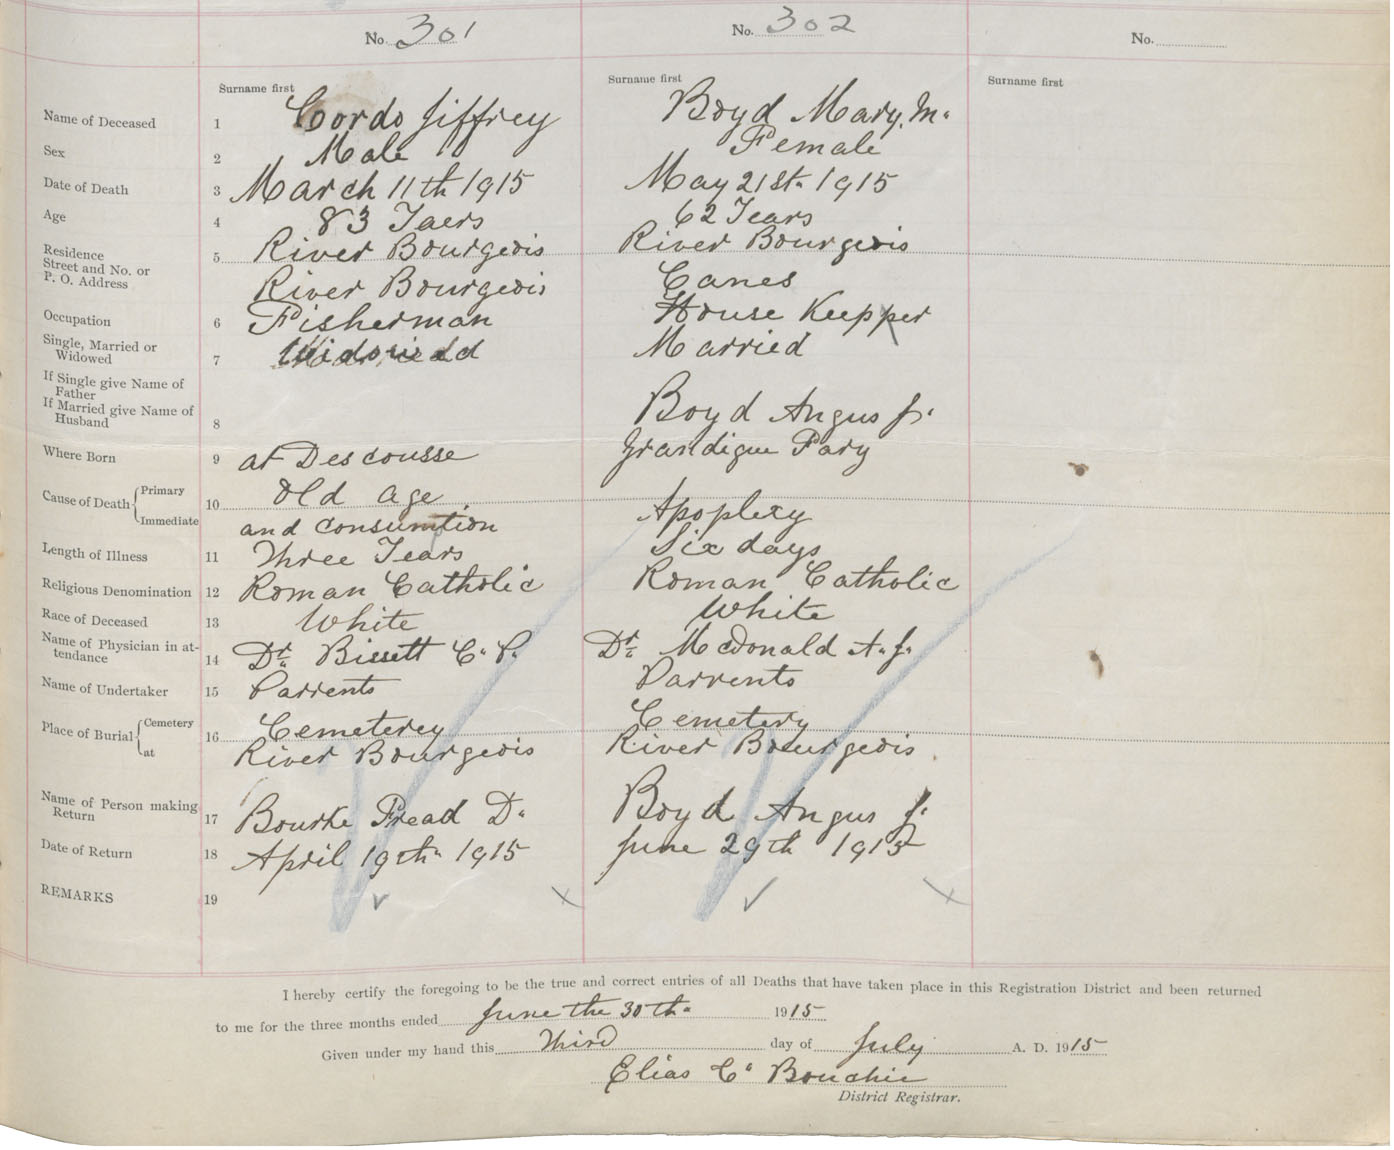 No. 301
No. 302
No.
Surname first
Surname first
Surname first
Name of Deceased 1 Cordo Jiffrey Boyd Mary. M.
Sex 2 Male Female
Date of Death 3 March 11th 1915 May 21st. 1915
Age 4 83 Yaers 62 Years
Residence
Street and No. or
P. O. Address
5 River Bourgeois River Bourgeois
River Bourgeois Canes
Occupation 6 Fisherman House Keepper
Single, Married or
Widowed
7 Married
If Single give Name of
Father
If Married give Name of
Husband
8 Boyd Angus J.
Where Born 9 at Descousse Grandique Fary
Cause of Death Primary
Immediate
10 Old Age
and consumtion Apoplexy
Length of Illness 11 Three Years Six days
Religious Denomination 12 Roman Catholic Roman Catholic
Race of Deceased 13 White White
Name of Physician in at-
tendance
14 Dr. Bissett C. P. Dr. McDonald A. J.
Name of Undertaker 15 Parrents Parrents
Place of Burial Cemetery
at
16 Cemeterey Cemetery
River Bourgeois River Bourgeois
Name of Person making
Return
17 Bourke Fread D. Boyd Angus J.
Date of Return 18 April 19th. 1915 June 29th 1915
REMARKS 19
I hereby certify the foregoing to be the true and correct entries of all Deaths that have taken place in this Registration District and been returned
to me for the three months ended June the 30th. 1915
Given under my hand this Third day of July A. D. 1915
Elias C. Bouchie
District Registrar.